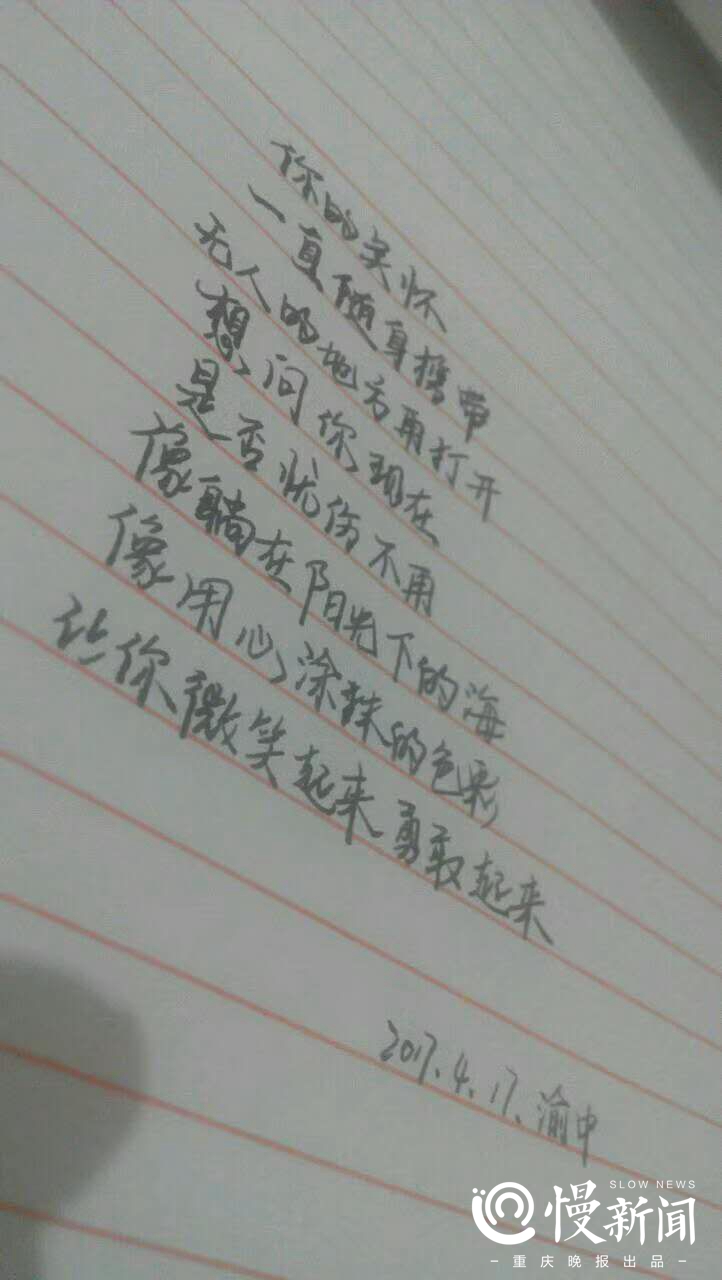 你的关怀
一直随身携带
无人的地方再打开
想问你现在
是否忧伤不再
像躺在阳光下的海
像用心涂抹的色彩
让你微笑起来勇敢起来
2017.4.17.渝中
SLOW NEWS
慢新闻
-重庆晚报出品-